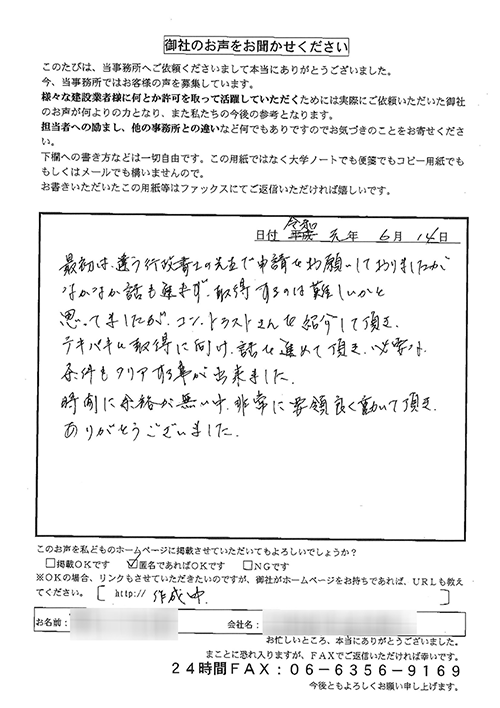 御社のお声をお聞かせください
このたびは、当事務所へご依頼くださいまして本当にありがとうございました。
今、当事務所ではお客様の声を募集しています。
様々な建設業者様に何とか許可を取って活躍していただくためには実際にご依頼いただいた御社
のお声が何よりの力となり、また私たちの今後の参考となります。
担当者への励まし、他の事務所との違いなど何でもありですのでお気づきのことをお寄せくださ
い。
下欄への書き方などは一切自由です。この用紙ではなく大学ノートでも便箋でもコピー用紙でも
もしくはメールでも構いませんので。
お書きいただいたこの用紙等はファックスにてご返信いただければ嬉しいです。
令和
日付 平成 元 年 6 月 14 日
最初は、違う行政書士の先生で申請をお願いしておりましたが
なかなか話も進まず、取得するのは難しいかと
思ってましたが、コントラストさんを紹介して頂き、
テキパキと取得に向け、話を進めて頂き、必要な
条件もクリアする事が出来ました。
時間に余裕が無い中、非常に要領良く動いて頂き、
ありがとうございました。
このお声を私どものホームページに掲載させていただいてもよろしいでしょうか?
□掲載OKです ☑匿名であればOKです □NGです
※OKの場合、リンクもさせていただきたいのですが、御社がホームページをお持ちであれば、URLも教え
てください。 [ http:// 作成中. ]
お名前: 会社名:
お忙しいところ、本当にありがとうございました。
まことに恐れ入りますが、FAXでご返信いただければ幸いです。
24時間FAX:06-6356-9169
今後ともよろしくお願い申し上げます。